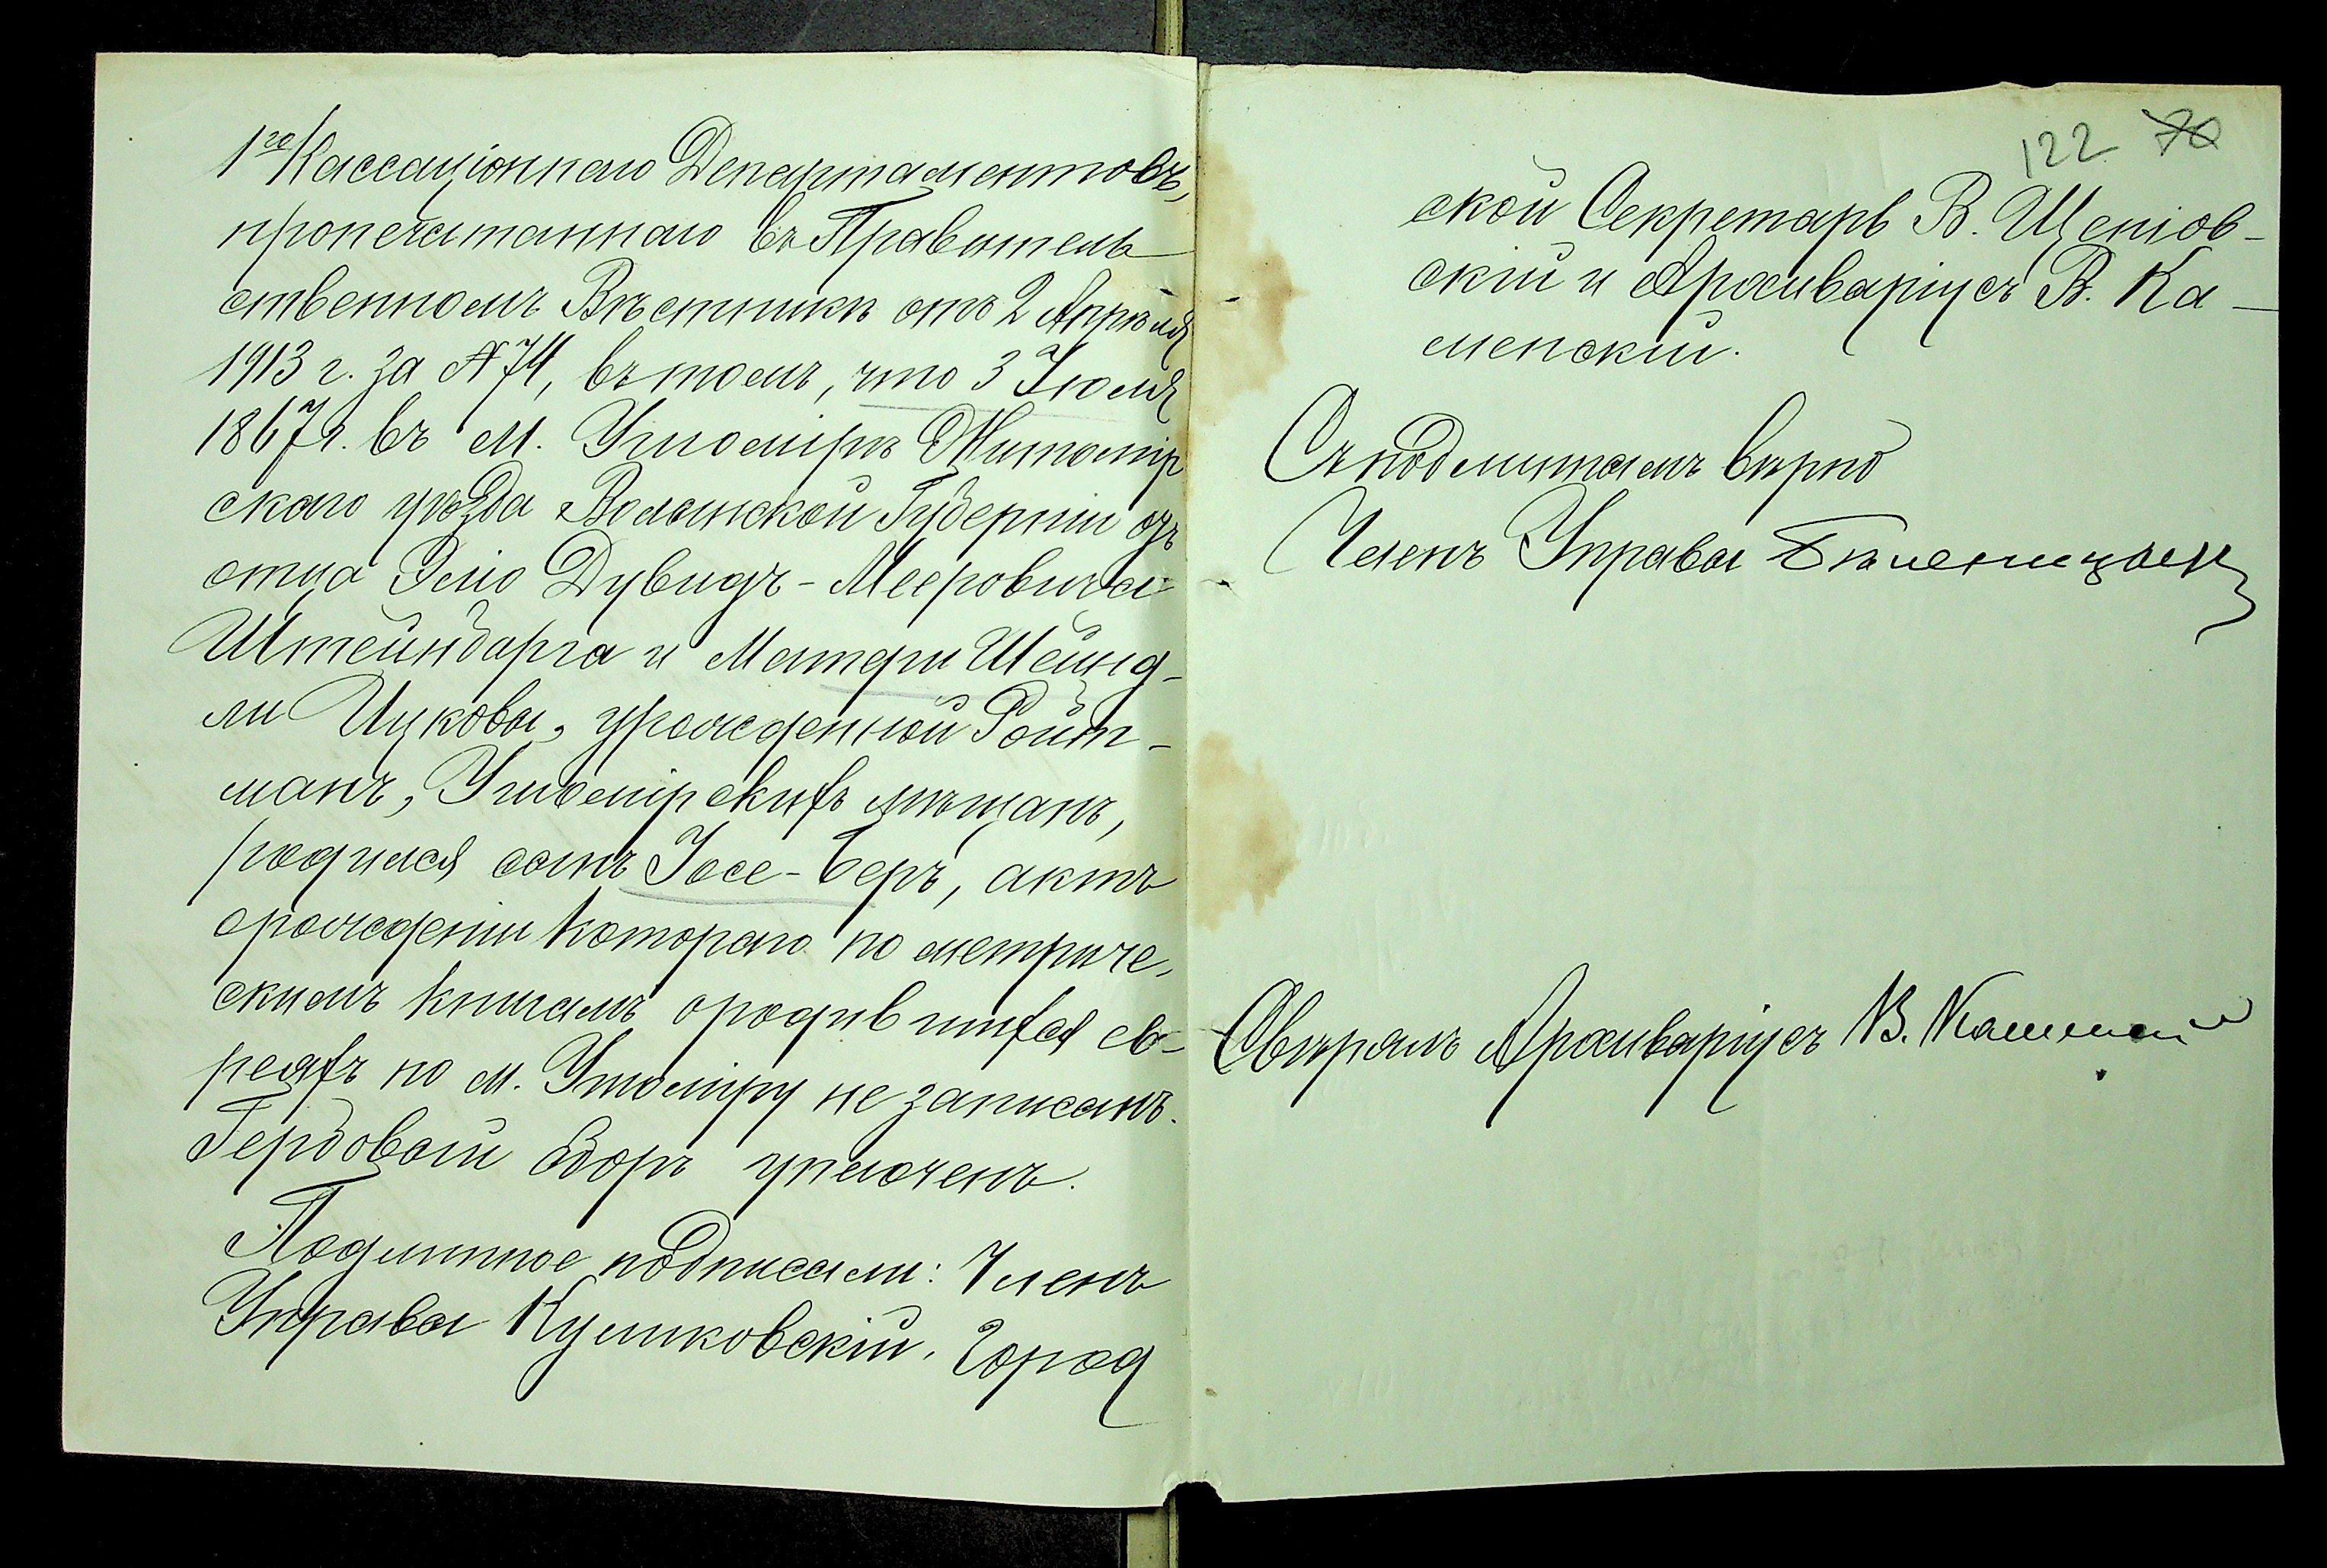 1го Кассаціоннаго Департаментовъ,
пропечатаннаго въ Правитель
ственномъ Вѣстникѣ отъ 2 Апрѣля
1913 г. за № 74, въ томъ, что 3 Іюля
1867 г. въ м. Ушомірѣ Житомір
скаго уѣзда Волынской Губерніи отъ
отца Эліо Дувидъ-Мееровича
Штейнбарга и Матери Шейнд-
ли Ицковы, урожденной Ройт-
манъ, Ушомірскихъ мѣщанъ,
родился сынъ Іосе-Беръ, актъ
орожденіи котораго по метриче-
скимъ книгамъ ородившихся ев-
реяхъ по м. Ушоміру не записанъ.
Гербовый сборъ уплоченъ.
Подлинное подписали: Членъ
Управы Куликовскій, Город
122 70
ской Секретарь В.
скій и Архиваріусъ В. Ка-
менскій.
Съ подлиннымъ вѣрно
Членъ Управы
Свѣрялъ Архиваріусъ В. Каменскій